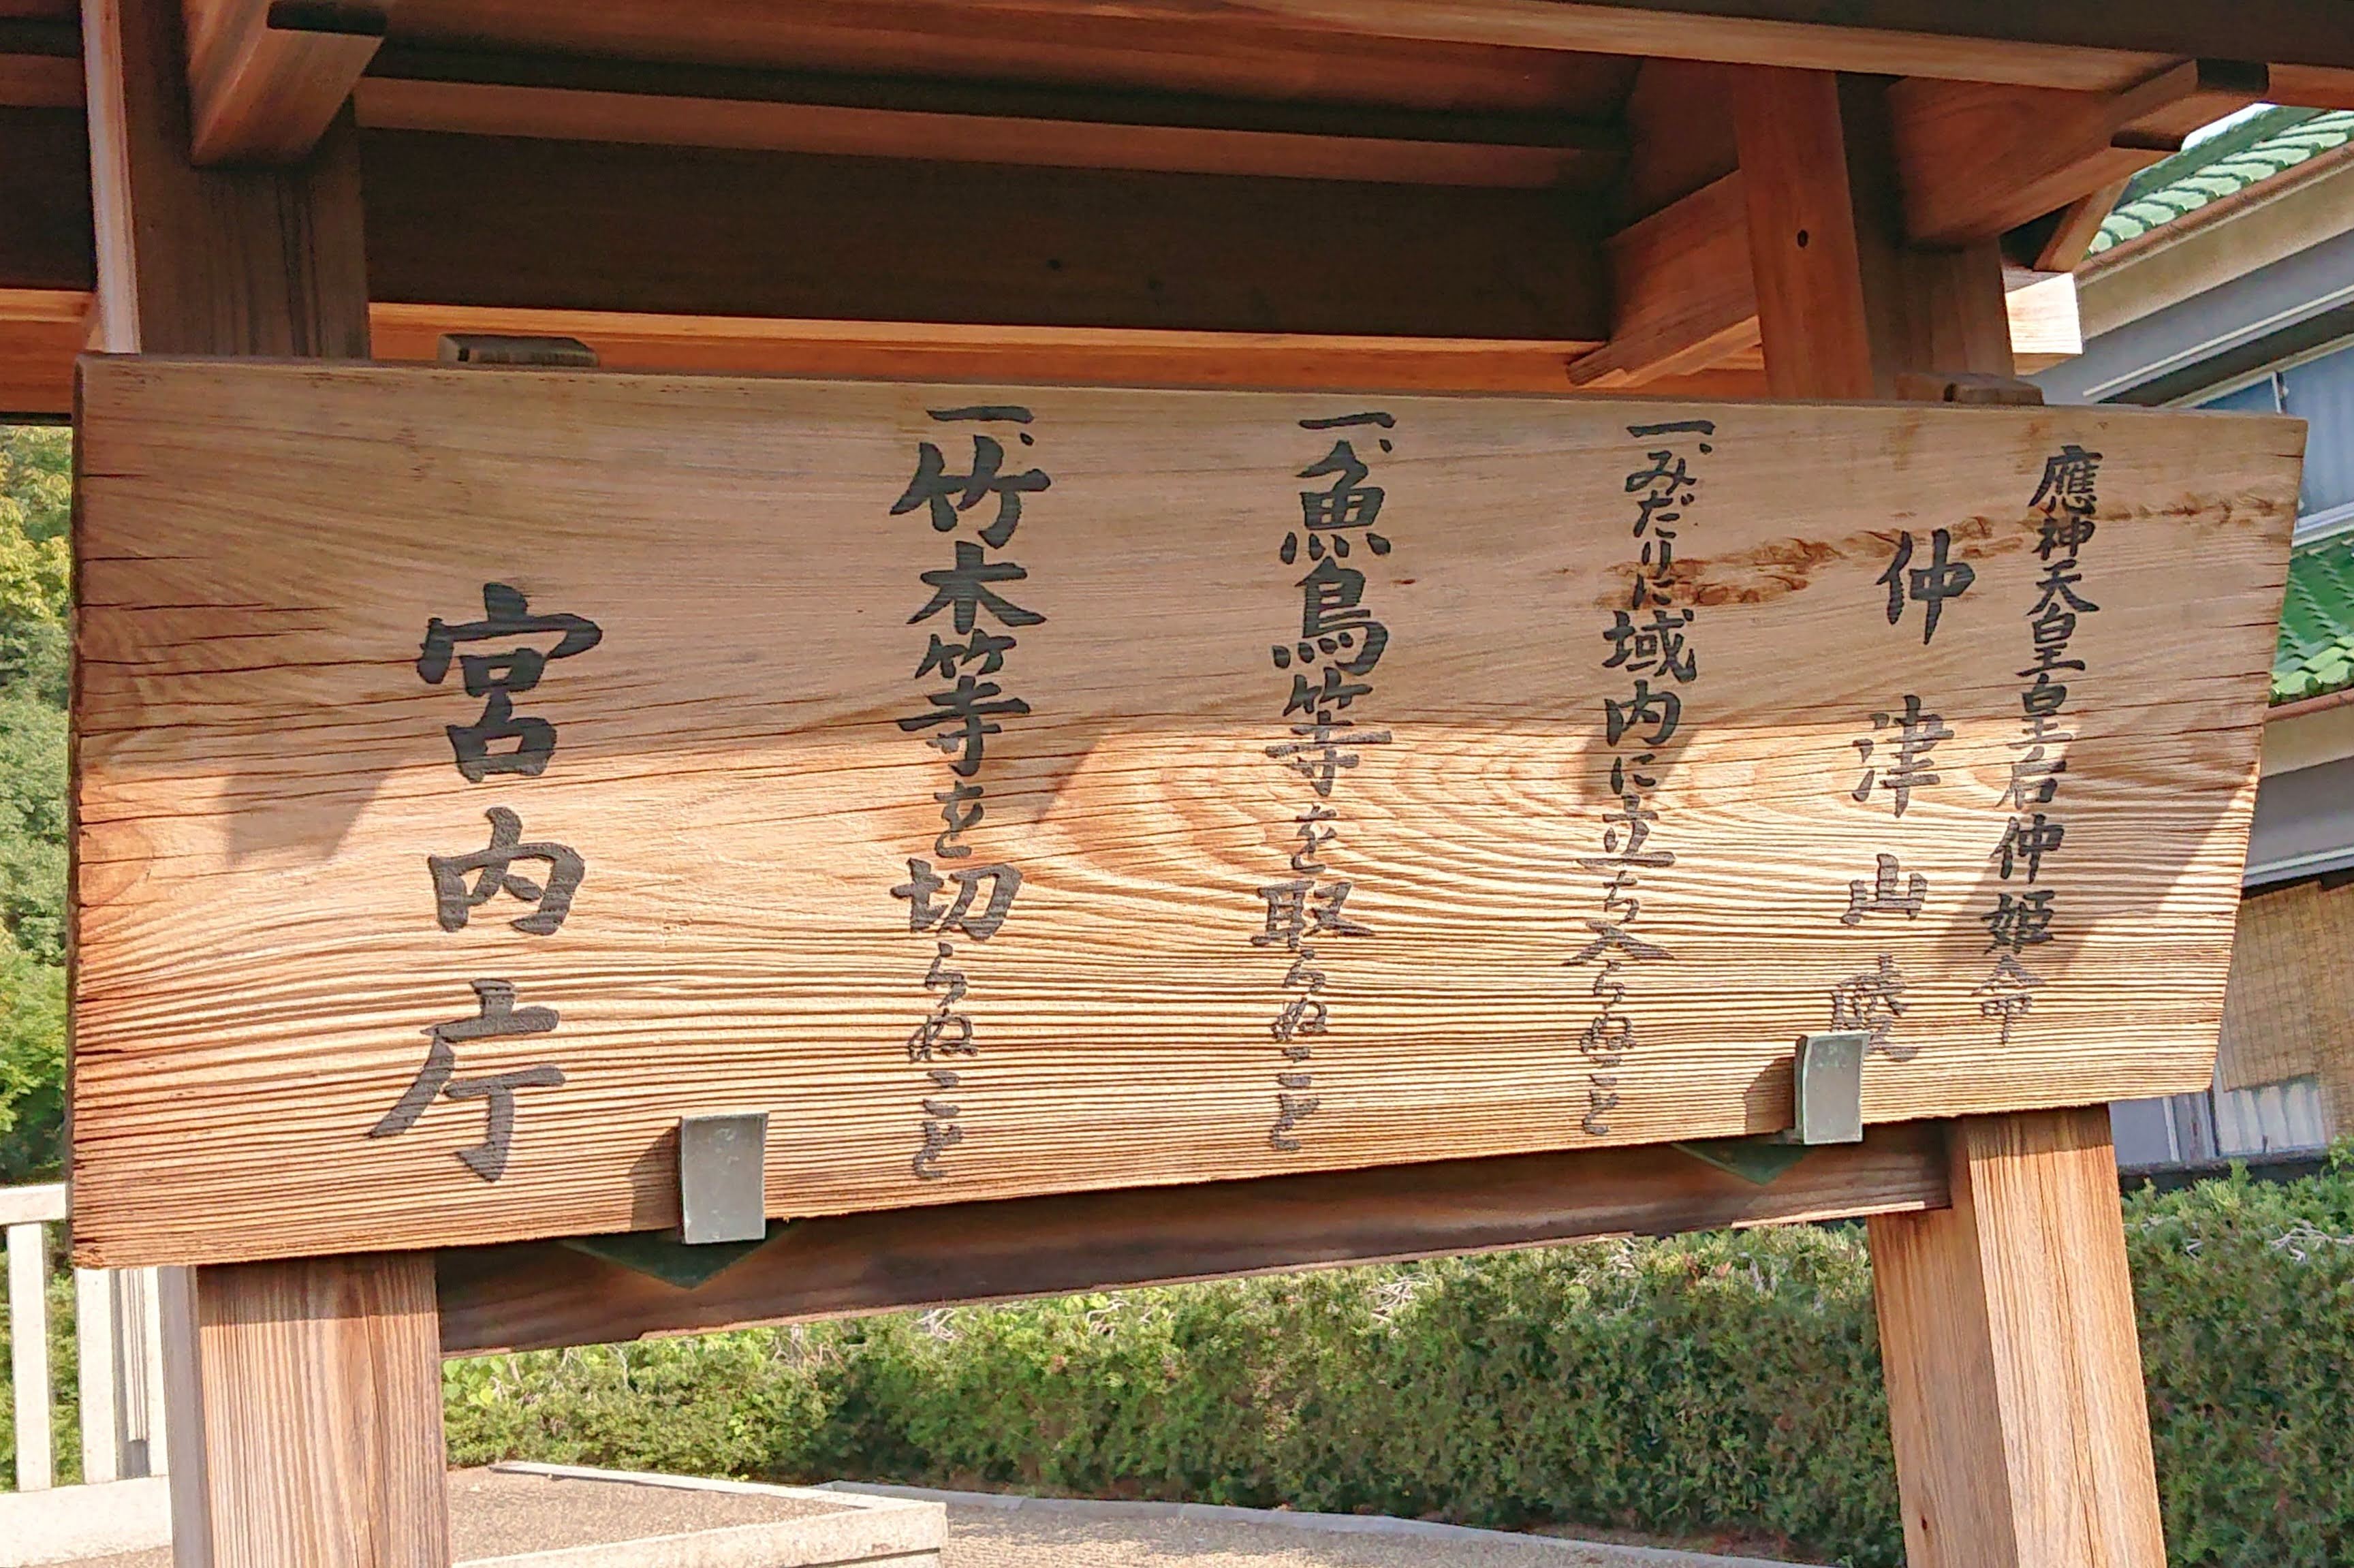 應神天皇皇后仲姫命
仲津山陵
一、みだりに域内に立ち入らぬこと
一、魚鳥等を取らぬこと
一、竹木等を切らぬこと
宮内庁